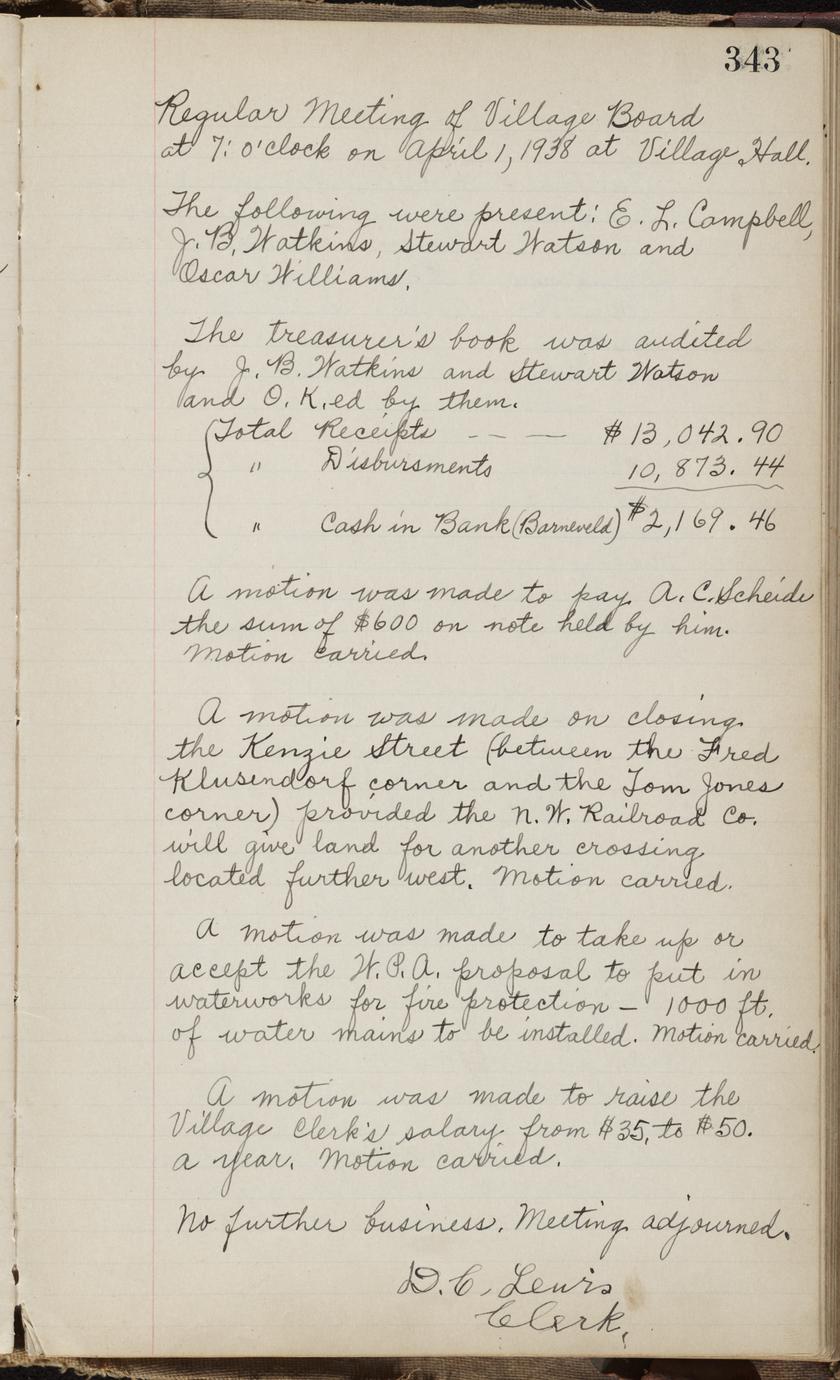 343
Regular Meeting of Village Board
at 7: o'clock on April 1, 1938 at Village Hall.
The following were present: E. L. Campbell,
J. B. Watkins, Stewart Watson and
Oscar Williams.
The treasurer's book was audited
by J. B. Watkins and Stewart Watson
and O. K.ed by them.
Total Receipts - - - $13,042.90
" Disbursments 10,873.44
" Cash in Bank (Barneveld) $2,169.46
A motion was made to pay A. C. Scheide
the sum of $600 on note held by him.
Motion carried.
A motion was made on closing
the Kenzie Street (between the Fred
Klusendorf corner and the Tom Jones
corner) provided the N. W. Railroad Co.
will give land for another crossing
located further west. Motion carried.
A motion was made to take up or
accept the W.P.A. proposal to put in
waterworks for fire protection — 1000 ft.
of water mains to be installed. Motion carried.
A motion was made to raise the
Village Clerk's salary from $35. to $50.
a year. Motion carried.
No further business. Meeting adjourned.
D. C. Lewis
Clerk.